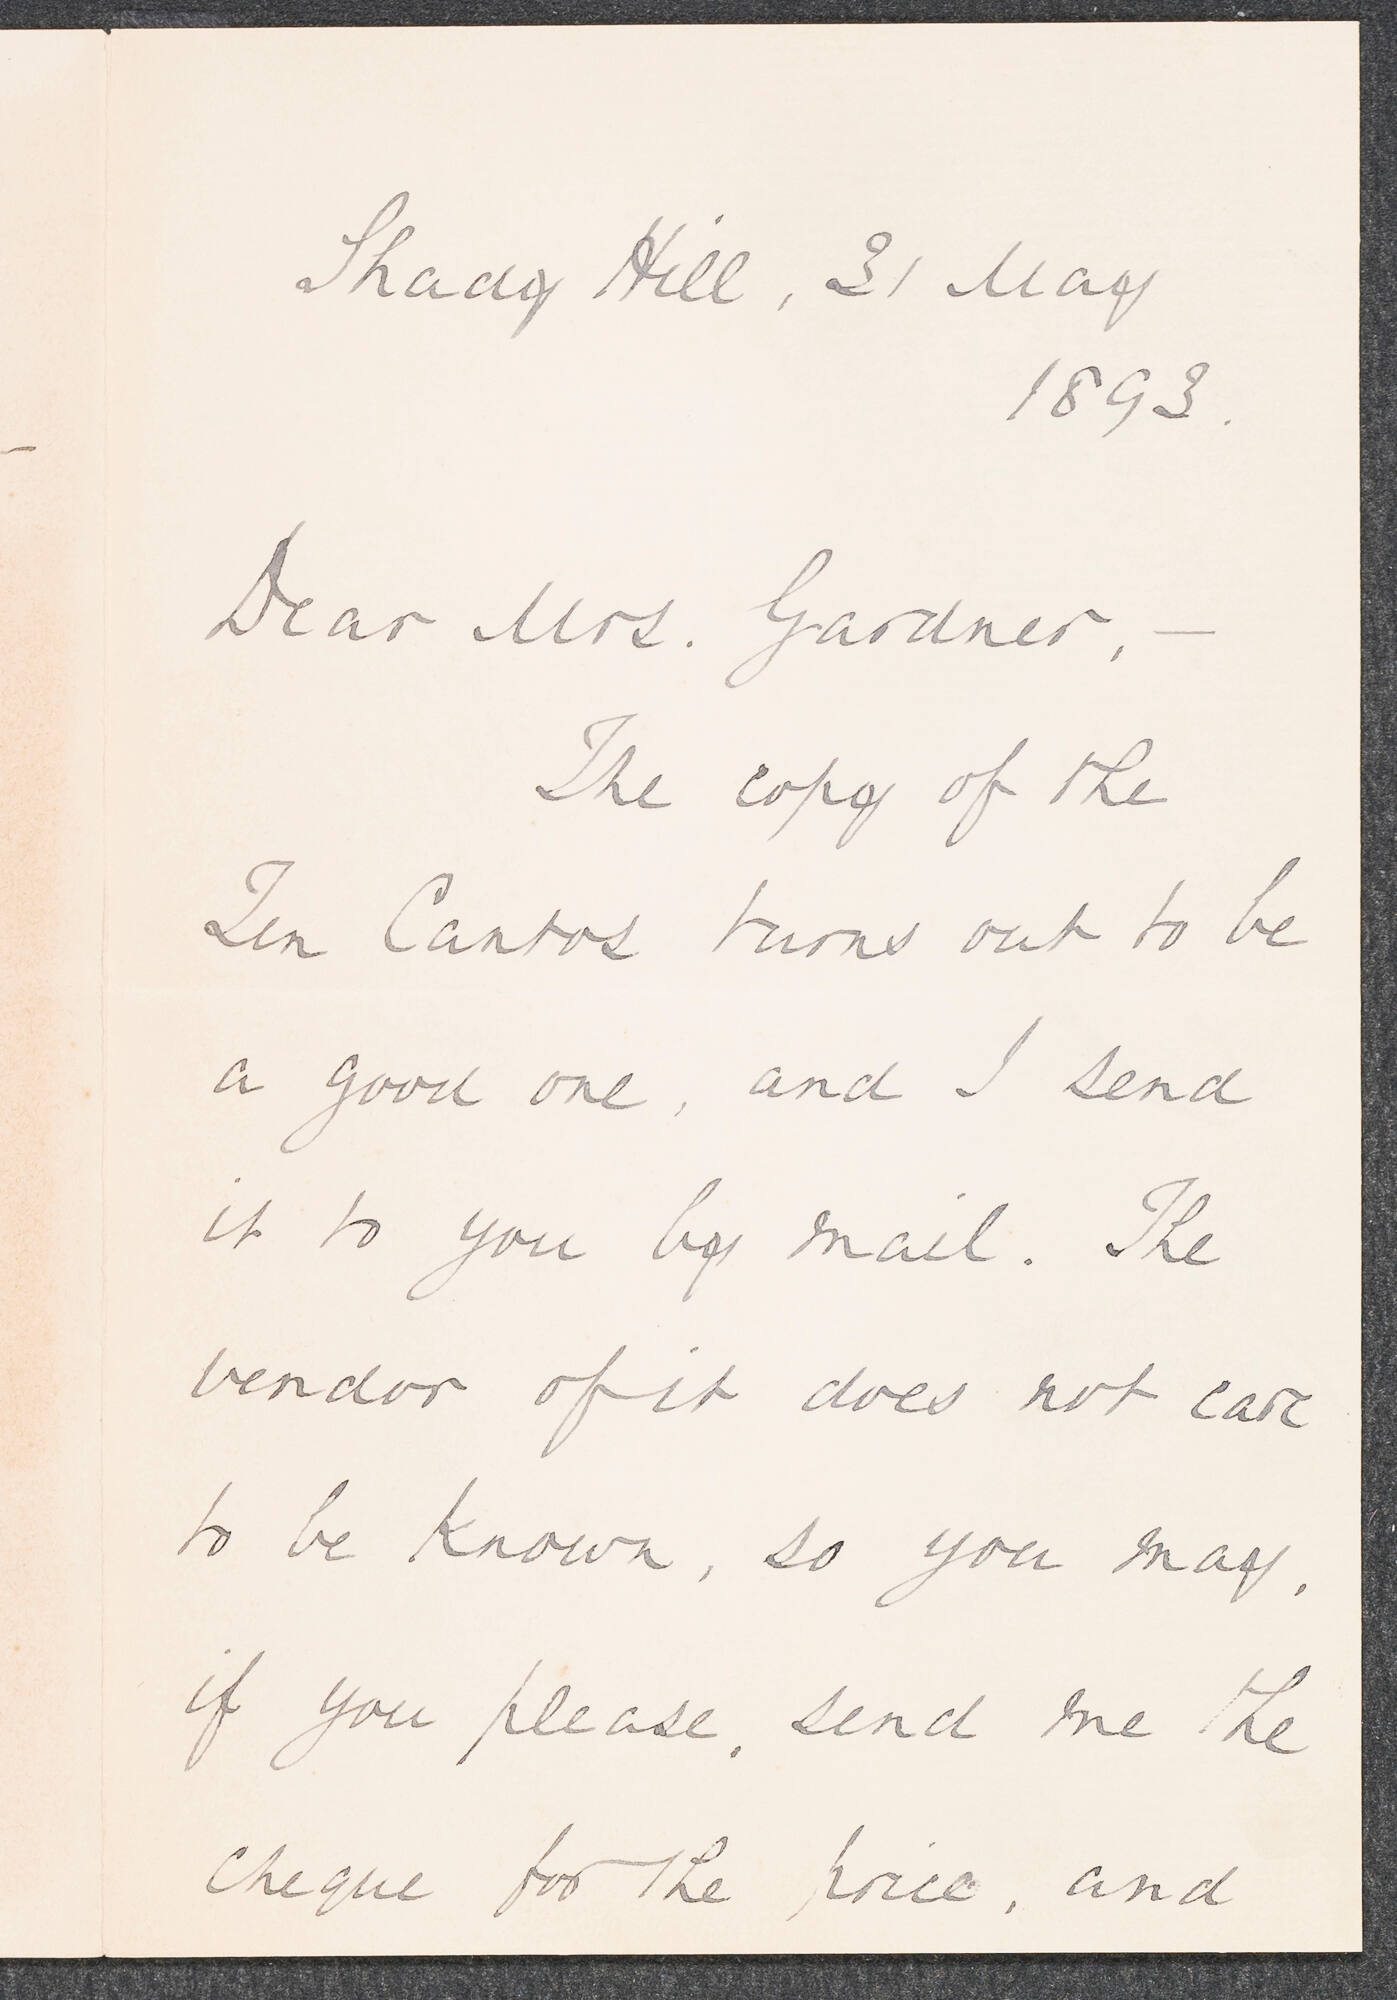 Shady Hill, 31 May
1893.
Dear Mrs. Gardner, —
The copy of the
Ten Cantos turns out to be
a good one, and I send
it to you by mail. The
vendor of it does not care
to be known, so you may,
if you please, send me the
cheque for the price, and